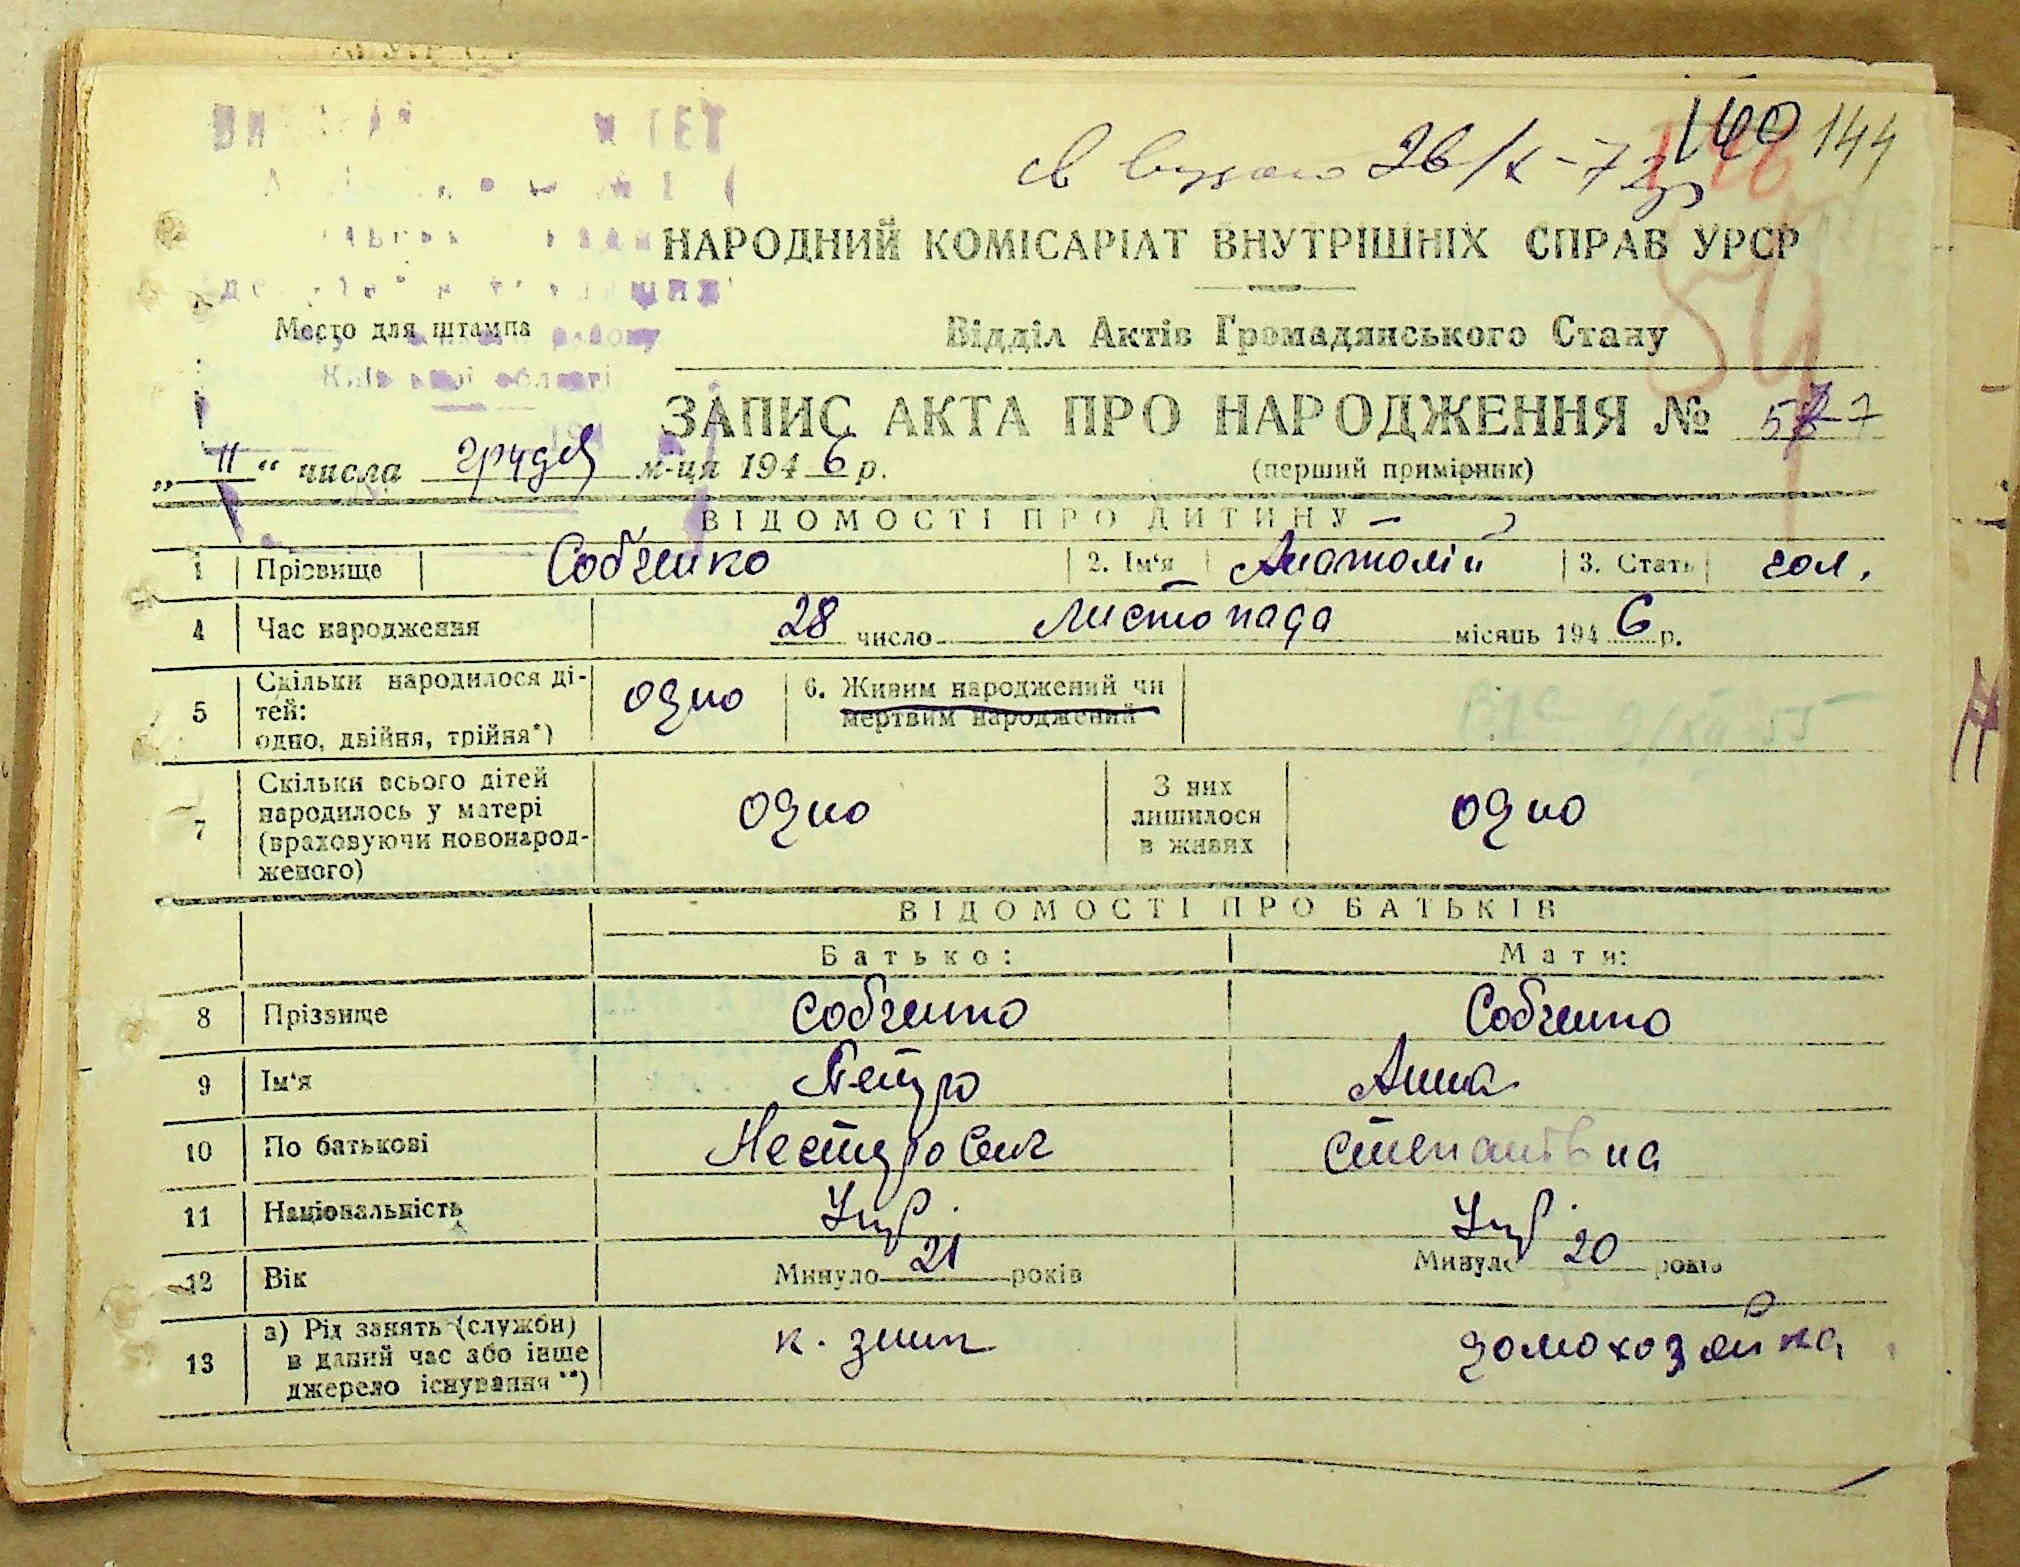 140 144
26/X-7
НАРОДНИЙ КОМІСАРІАТ ВНУТРІШНІХ СПРАВ УРСР
Место для штампа
району
області
Відділ Актів Громадянського Стану
ЗАПИС АКТА ПРО НАРОДЖЕННЯ №
(перший примірник)
„ 11 “ числа грудня м-ця 194 6 р.
ВІДОМОСТІ ПРО ДИТИНУ
1 Прізвище Собченко 2. Ім'я Анатолій 3. Стать чол.
4 Час народження 28 число Листопада місяць 194 6 р.
5 Скільки народилося ді-
тей:
одно, двійня, трійня*)
одно
6. Живим народжений чи
мертвим народжений
7 Скільки всього дітей
народилось у матері
(враховуючи новонарод-
женого)
одно
З них
лишилося
в живих
одно
ВІДОМОСТІ ПРО БАТЬКІВ
Батько: Мати:
8 Прізвище Собченко Собченко
9 Ім'я Петро Анна
10 По батькові Нестерович Степанівна
11 Національність Укр. Укр.
12 Вік Минуло 21 років Минуло 20 років
13 а) Рід занять (служби)
в даний час або інше
джерело існування**)
домохозяйка